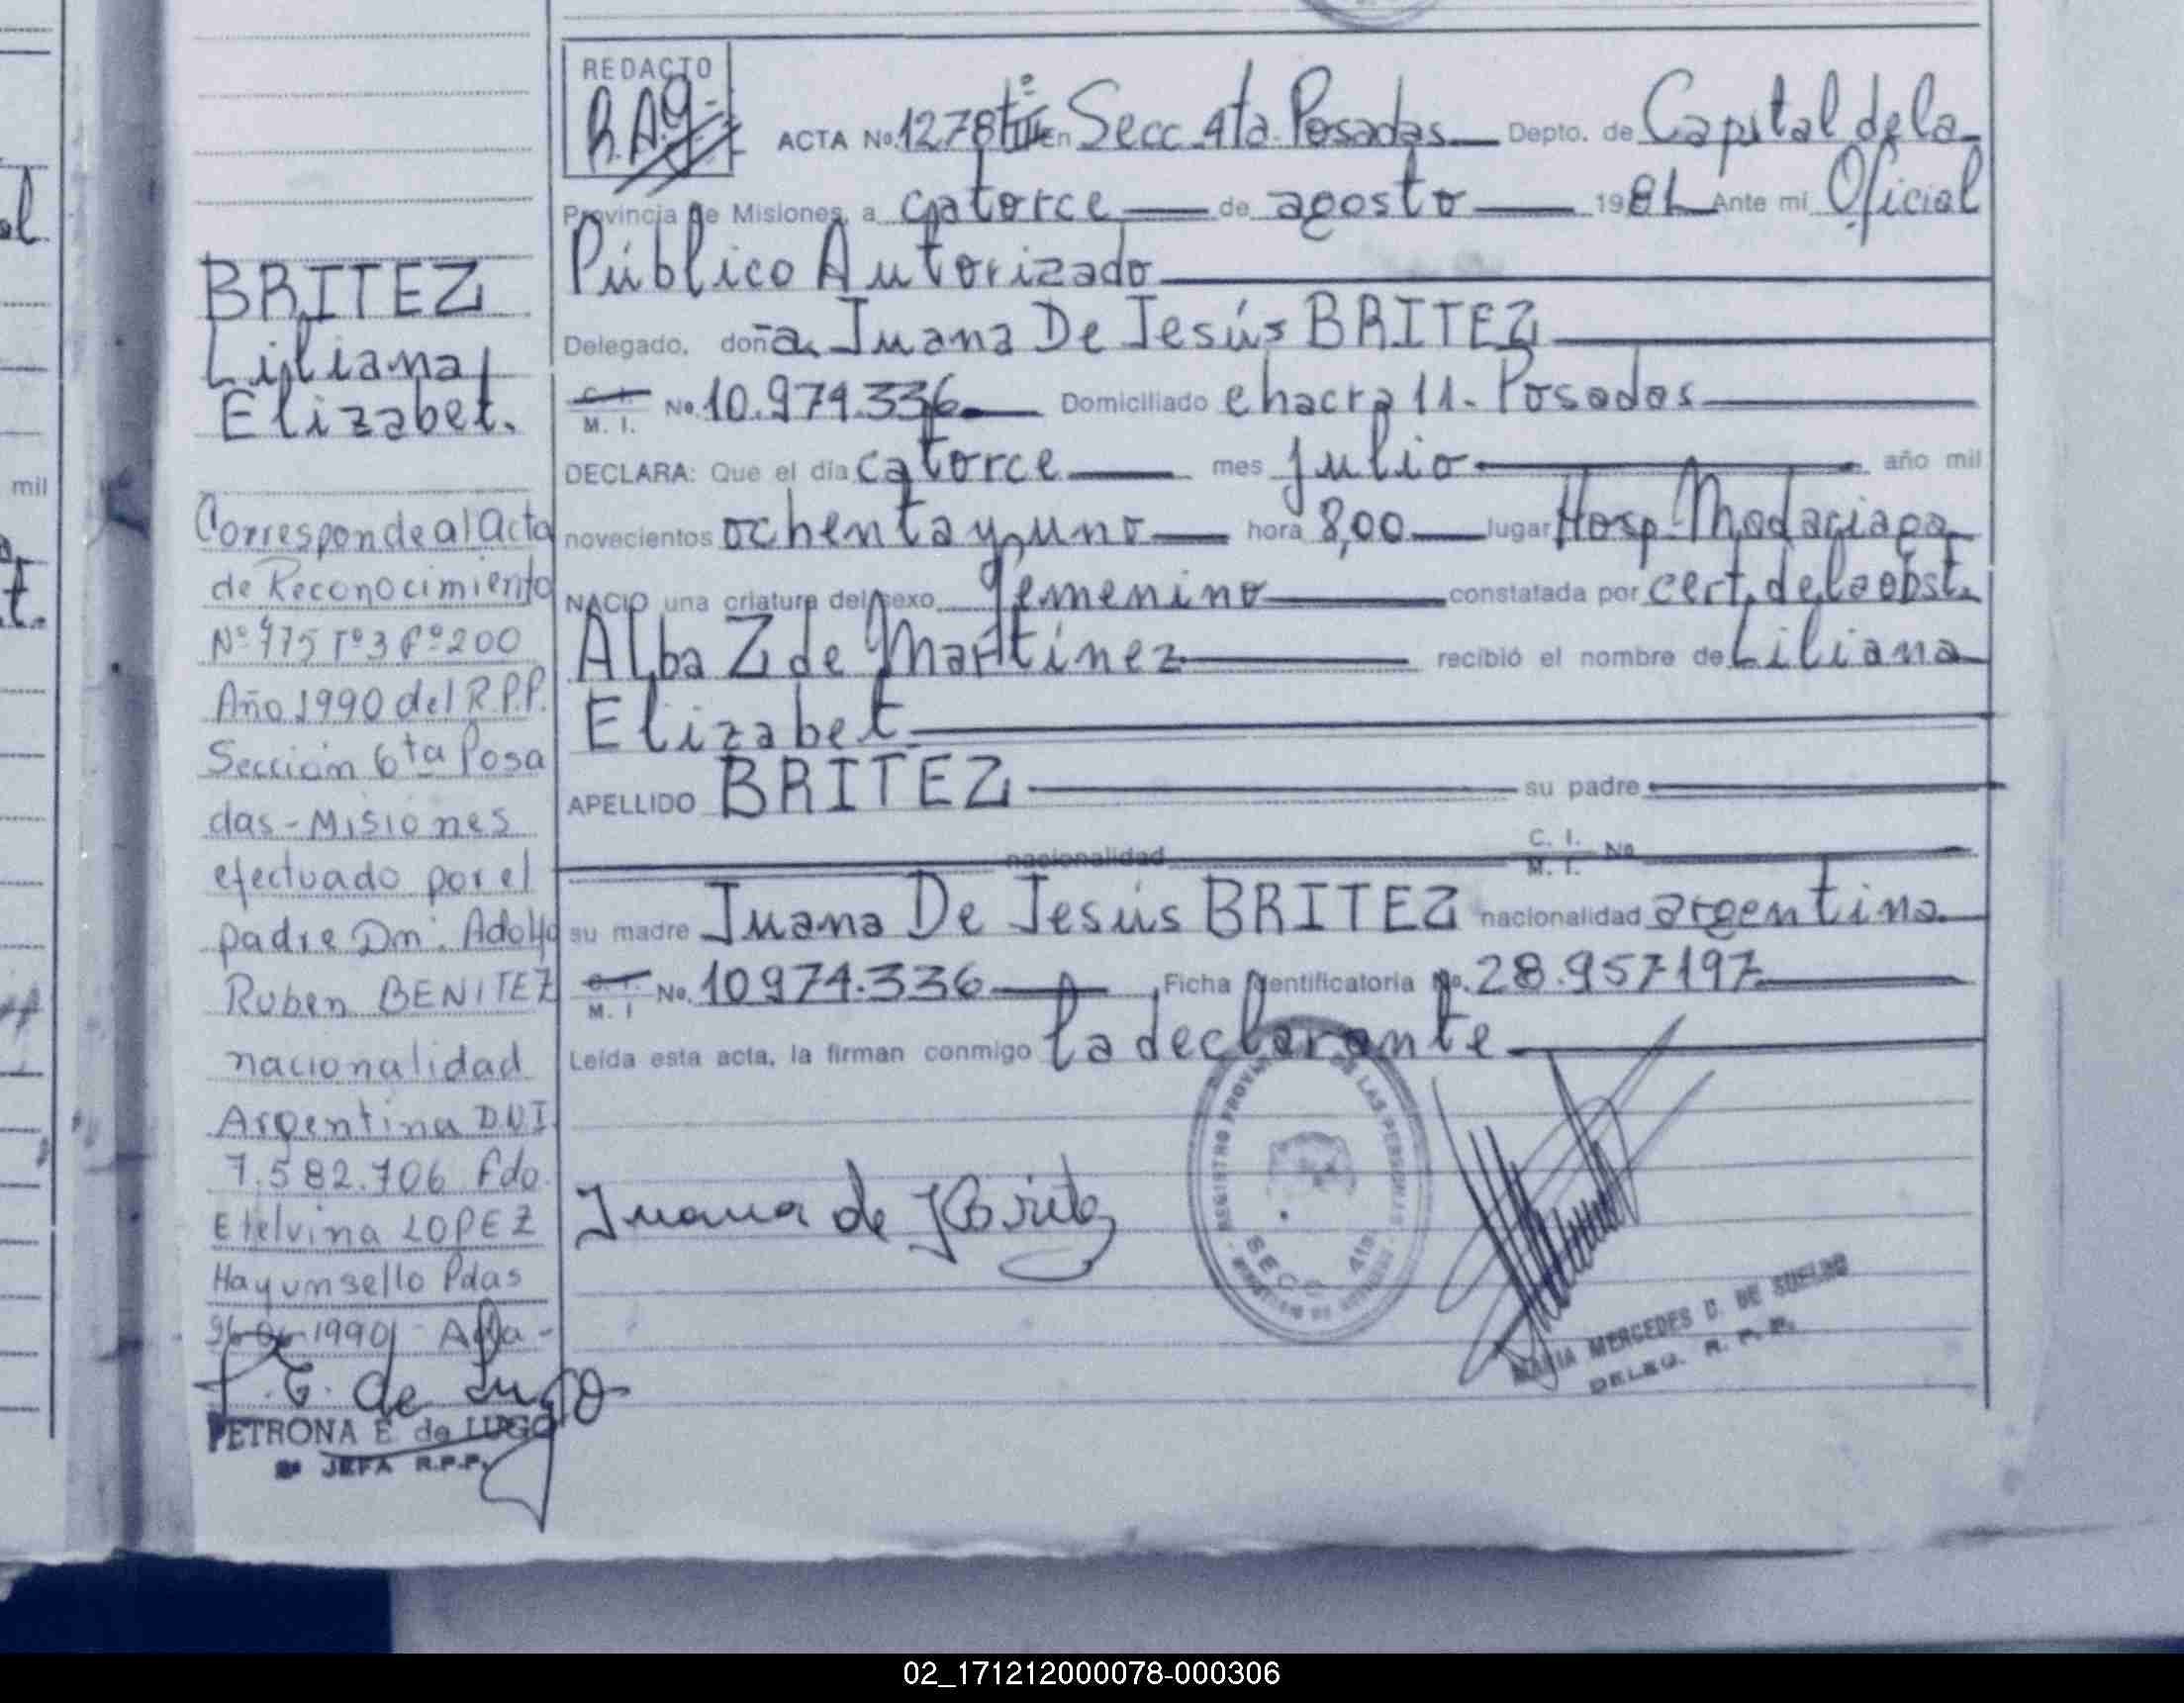 REDACTO
R.A.g.
ACTA No. 1278 En Secc. 4ta. Posadas Depto. de Capital de la
Provincia de Misiones, a catorce de agosto 1981 Ante mi Oficial
Público Autorizado
Delegado, doña Juana De Jesús BRITEZ
C. I.
M. I. No. 10.974.336 Domiciliado chacra 11. Posadas
DECLARA: Que el día catorce mes julio año mil
novecientos ochenta y uno hora 8,00 lugar Hosp. Madariaga
NACIO una criatura del sexo femenino constatada por cert. de la obst.
Alba Z de Martínez recibió el nombre de Liliana
Elizabet
APELLIDO BRITEZ su padre
nacionalidad C. I. M. I. No
su madre Juana De Jesús BRITEZ nacionalidad argentina
C. I.
M. I No. 10974.336 Ficha Identificatoria No. 28.957197
Leída esta acta, la firman conmigo la declarante
Juana de J Britez
REGISTRO LAS PERSONAS
SECC 4ta
MARIA MERCEDES D. DE SUELDO
DELEG. R. P. P.
BRITEZ
Liliana
Elizabet.
Corresponde al Acta
de Reconocimiento
Nº 475 Tº3 Fº200
Año 1990 del R.P.P.
Sección 6ta Posa
das - Misiones
efectuado por el
padre Dn. Adolfo
Ruben BENITEZ
nacionalidad
Argentina DNI
7.582.706 Fdo.
Etelvina LOPEZ
Hay un sello Pdas
1990
P.E. de Lugo
PETRONA E de LUGO
JEFA R.P.P.
mil
02_171212000078-000306